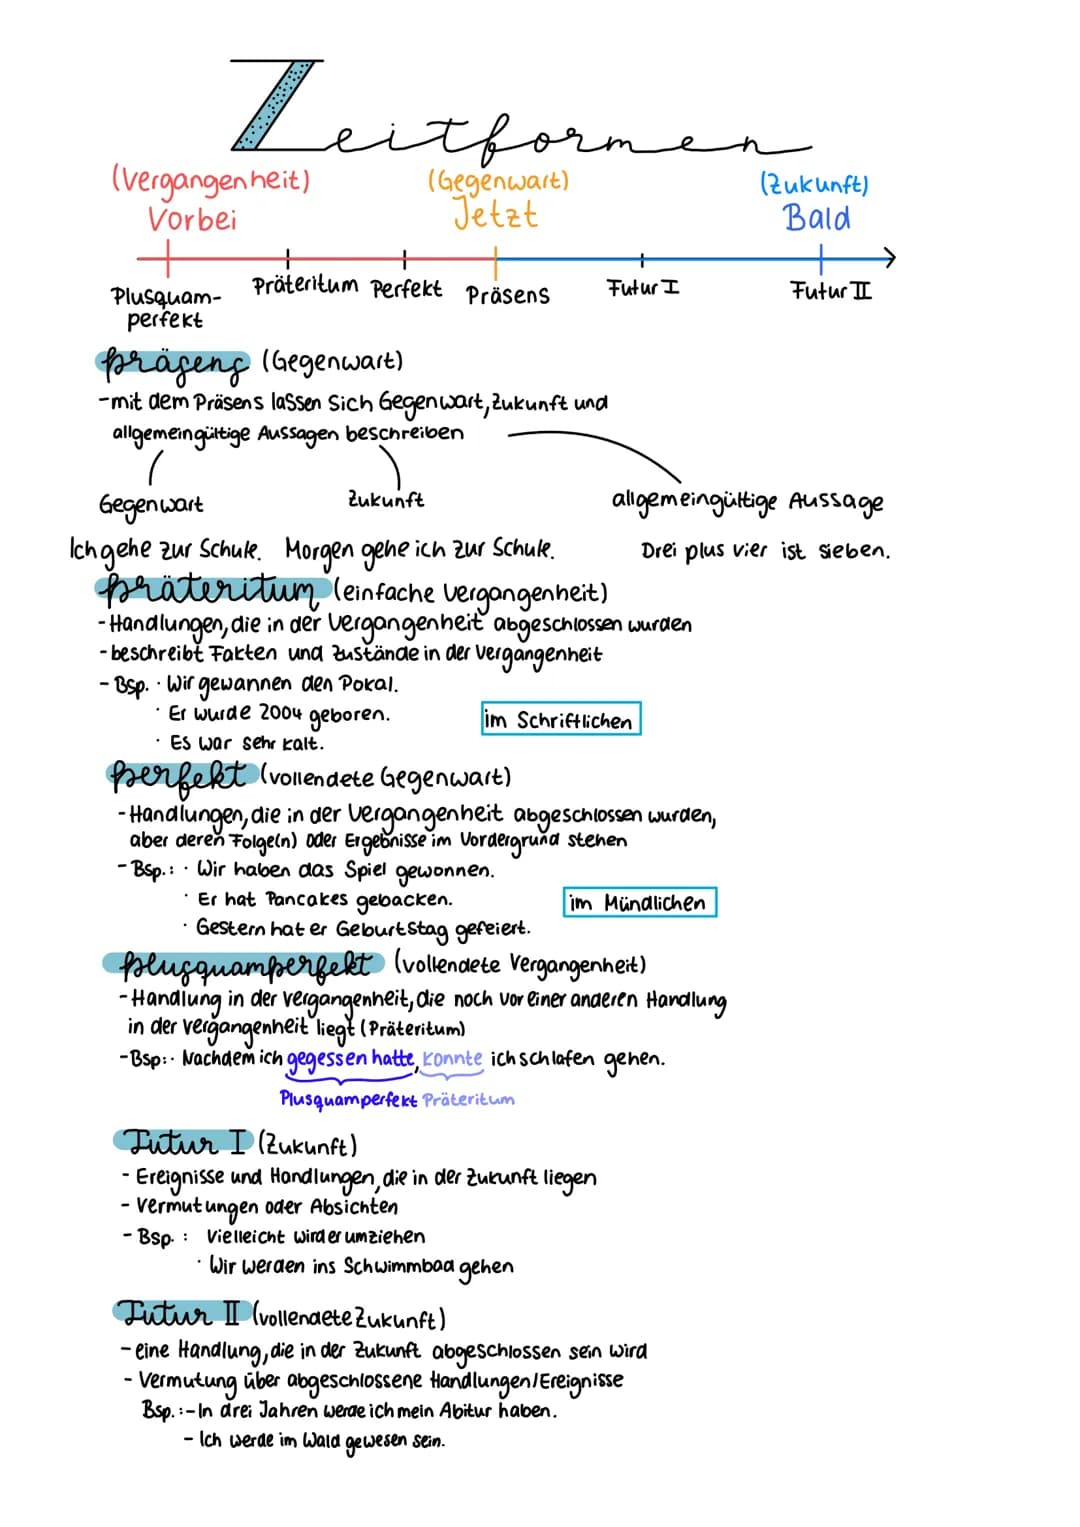 Zeitformen
(Vergangenheit) (Gegenwart) (Zukunft)
Vorbei Jetzt Bald
Plusquam-
perfekt
Präteritum Perfekt Präsens Futur I Futur II
Präsens (Gegenwart)
-mit dem Präsens lassen sich Gegenwart, Zukunft und
allgemeingültige Aussagen beschreiben
Gegenwart Zukunft allgemeingültige Aussage
Ich gehe zur Schule. Morgen gehe ich zur Schule. Drei plus vier ist sieben.
Präteritum (einfache Vergangenheit)
-Handlungen, die in der Vergangenheit abgeschlossen wurden
-beschreibt Fakten und Zustände in der Vergangenheit
- Bsp. · Wir gewannen den Pokal.
· Er wurde 2004 geboren.
im Schriftlichen
· Es war sehr kalt.
Perfekt (vollendete Gegenwart)
-Handlungen, die in der Vergangenheit abgeschlossen wurden,
aber deren Folge(n) oder Ergebnisse im Vordergrund stehen
- Bsp.: · Wir haben das Spiel gewonnen.
· Er hat Pancakes gebacken.
im Mündlichen
· Gestern hat er Geburtstag gefeiert.
Plusquamperfekt (vollendete Vergangenheit)
-Handlung in der Vergangenheit, die noch vor einer anderen Handlung
in der Vergangenheit liegt (Präteritum)
-Bsp.: · Nachdem ich gegessen hatte, konnte ich schlafen gehen.
Plusquamperfekt Präteritum
Futur I (Zukunft)
- Ereignisse und Handlungen, die in der Zukunft liegen
- Vermutungen oder Absichten
- Bsp. : Vielleicht wird er umziehen
· Wir werden ins Schwimmbad gehen
Futur II (vollendete Zukunft)
- eine Handlung, die in der Zukunft abgeschlossen sein wird
- Vermutung über abgeschlossene Handlungen/Ereignisse
Bsp. :- In drei Jahren werde ich mein Abitur haben.
- Ich werde im Wald gewesen sein.